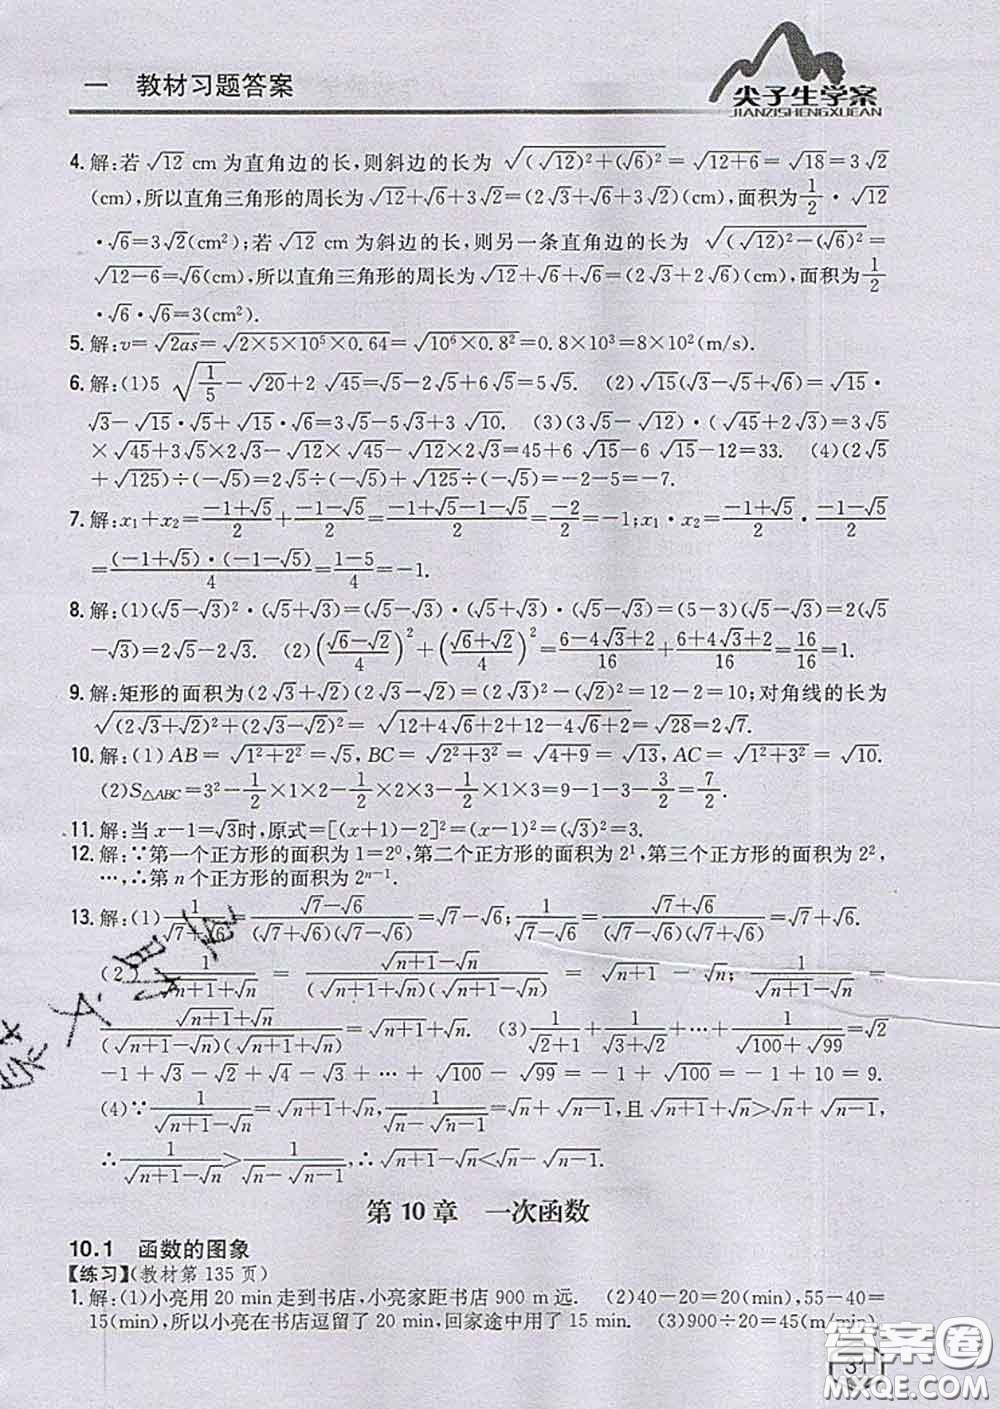 一 教材习题答案
尖子生学案
JIANZISHENGXUEAN
4. 解:若 √12 cm 为直角边的长,则斜边的长为 √((√12)²+(√6)²)=√(12+6)=√18=3√2
(cm),所以直角三角形的周长为√12+√6+3√2=(2√3+√6+3√2)(cm),面积为1/2·√12
·√6=3√2(cm²);若√12 cm为斜边的长,则另一条直角边的长为 √((√12)²-(√6)²)=
√(12-6)=√6(cm),所以直角三角形的周长为√12+√6+√6=(2√3+2√6)(cm),面积为1/2
·√6·√6=3(cm²).
5. 解:v=√(2as)=√(2×5×10⁵×0.64)=√(10⁶×0.8²)=0.8×10³=8×10²(m/s).
6. 解:(1)5√(1/5)-√20+2√45=√5-2√5+6√5=5√5. (2)√15(√3-√5+√6)=√15·
√3-√15·√5+√15·√6=3√5-5√3+3√10. (3)(3√5-√12)·(√45+2√3)=3√5
×√45+3√5×2√3-√12×√45-√12×2√3=45+6√15-6√15-12=33. (4)(2√5
+√125)÷(-√5)=2√5÷(-√5)+√125÷(-√5)=-2-5=-7.
7. 解:x₁+x₂=(-1+√5)/2+(-1-√5)/2=(-1+√5-1-√5)/2=-2/2=-1;x₁·x₂=(-1+√5)/2·(-1-√5)/2
=((-1+√5)·(-1-√5))/4=(1-5)/4=-1.
8. 解:(1)(√5-√3)²·(√5+√3)=(√5-√3)·(√5+√3)·(√5-√3)=(5-3)(√5-√3)=2(√5
-√3)=2√5-2√3. (2)((√6-√2)/4)²+((√6+√2)/4)²=(6-4√3+2)/16+(6+4√3+2)/16=16/16=1.
9. 解:矩形的面积为(2√3+√2)(2√3-√2)=(2√3)²-(√2)²=12-2=10;对角线的长为
√((2√3+√2)²+(2√3-√2)²)=√(12+4√6+2+12-4√6+2)=√28=2√7.
10. 解:(1)AB=√(1²+2²)=√5,BC=√(2²+3²)=√(4+9)=√13,AC=√(1²+3²)=√10.
(2)S△ABC=3²-1/2×1×2-1/2×2×3-1/2×1×3=9-1-3-3/2=7/2.
11. 解:当x-1=√3时,原式=[(x+1)-2]²=(x-1)²=(√3)²=3.
12. 解:∵第一个正方形的面积为1=2⁰,第二个正方形的面积为2¹,第三个正方形的面积为2²,
…,∴第n个正方形的面积为2ⁿ⁻¹.
13. 解:(1)1/(√7+√6)=(√7-√6)/((√7+√6)(√7-√6))=√7-√6;1/(√7-√6)=(√7+√6)/((√7-√6)(√7+√6))=√7+√6.
(2)1/(√(n+1)+√n)=(√(n+1)-√n)/((√(n+1)+√n)(√(n+1)-√n))=√(n+1)-√n;1/(√(n+1)-√n)=
(√(n+1)+√n)/((√(n+1)-√n)(√(n+1)+√n))=√(n+1)+√n. (3)1/(√2+1)+1/(√3+√2)+…+1/(√100+√99)=√2
-1+√3-√2+√4-√3+…+√100-√99=-1+√100=-1+10=9.
(4)∵1/(√(n+1)-√n)=√(n+1)+√n,1/(√n-√(n-1))=√n+√(n-1),且√(n+1)+√n>√n+√(n-1),
∴1/(√(n+1)-√n)>1/(√n-√(n-1)),∴√(n+1)-√n<√n-√(n-1).
第10章 一次函数
10.1 函数的图象
【练习】(教材第135页)
1. 解:(1)小亮用20 min走到书店,小亮家距书店900 m远. (2)40-20=20(min),55-40=
15(min),所以小亮在书店逗留了20 min,回家途中用了15 min. (3)900÷20=45(m/min),
31
答案圈
MXQE.COM